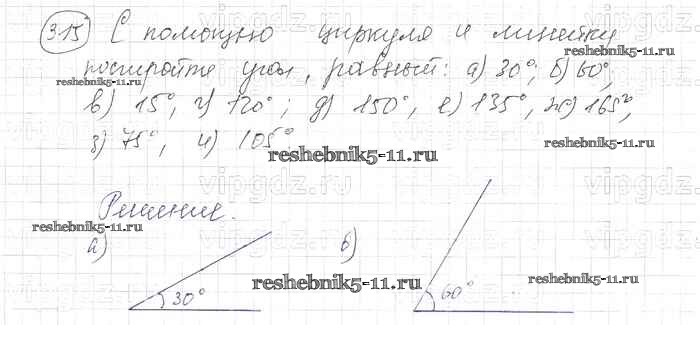 315° С помощью циркуля и линейки
reshebnik5-11.ru
постройте угол, равный: а) 30°; б) 60°;
reshebnik5-11.ru
в) 15°, г) 120°; д) 150°, е) 135°, ж) 165°,
reshebnik5-11.ru
з) 75°, и) 105°.
reshebnik5-11.ru
vipgdz.ru
Решение.
reshebnik5-11.ru
а) б)
30° reshebnik5-11.ru 60° reshebnik5-11.ru